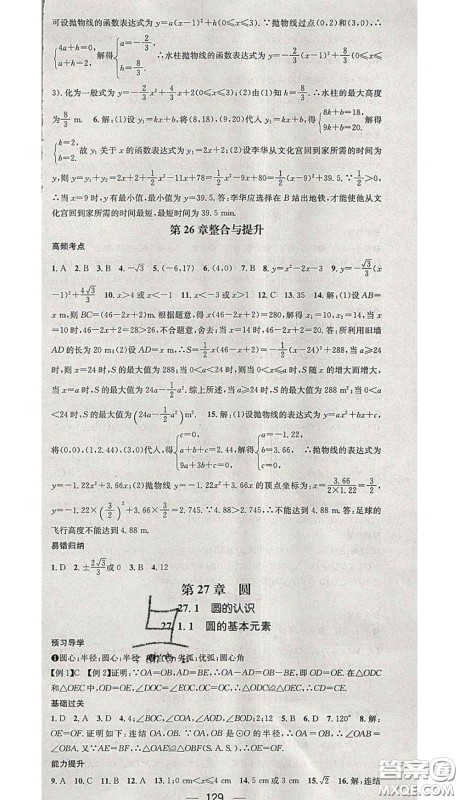 可设抛物线的函数表达式为 y=a(x-1)²+h(0≤x≤3). ∵抛物线过点(0,2)和(3,0),∴
{4a+h=0, a+h=2, 解得{a=-2/3, h=8/3. ∴水柱抛物线的函数表达式为 y=-2/3(x-1)²+8/3(0≤x≤
3). 化为一般式为 y=-2/3x²+4/3x+2(0≤x≤3);(2)由(1)知 h=8/3. ∴水柱的最大高度
为8/3 m. 6. 解:(1)设 y₁=kx+b, 将(8,18),(9,20)代入 y₁=kx+b, 得{8k+b=18, 9k+b=20. 解得
{k=2, b=2. 故 y₁ 关于 x 的函数表达式为 y₁=2x+2;(2)设李华从文化宫回到家所需的时间为
y, 则 y=y₁+y₂=2x+2+1/2x²-11x+78=1/2x²-9x+80=1/2(x-9)²+39.5. ∵1/2>0, ∴
当 x=9 时, y 有最小值, 最小值为 y=39.5. 答:李华应选择在 B 站出地铁, 才能使他从文
化宫回到家所需的时间最短, 最短时间为 39.5 min.
第 26 章整合与提升
高频考点
1. A 2. B 3. B 4. -√3 5. (-6,17) 6. (4,0) 7. B 8. y=x²-2x-3 9. y=-√3/3(x
-1)²+4√3/3 10. x>4 或 x<-2 11. x<-1 或 x>4 12. C 13. 35 14. 解:(1)设 AB=
x m, 则 BC=(46-2x+2)m. 根据题意得 x(46-2x+2)=280, 解得 x₁=10, x₂=14, 当 x
=10 时, 46-2x+2=28>26, 不合题意, 舍去; 当 x=14 时, 46-2x+2=20. 答:所利用旧墙
AD 的长为 20 m;(2)设 AD=x m, ∴S=1/2x(46-x+2)=-1/2(x-24)²+288, 当 a≥24
时, 则 x=24 时, S 的最大值为 288; 当 0<a<24 时, 则当 0<x≤a 时, S 随 x 的增大而增大,
当 x=a 时, S 的最大值为 24a-1/2a². 综上所述, 当 a≥24 时, S 的最大值为 288 m²; 当 0<a
<24 时, S 的最大值为(24a-1/2a²)m². 15. 解:(1)设抛物线的表达式为 y=ax²+bx+c,
将(0,0),(1,2.44),(3,0)代入, 得{c=0, a+b+c=2.44, 9a+3b+c=0. 解得{a=-1.22, b=3.66, c=0. ∴抛物线的表达式为
y=-1.22x²+3.66x;(2)抛物线 y=-1.22x²+3.66x 的顶点的坐标为:x=3.66/2×1.22=3/2,
y=-1.22×(3/2)²+3.66×3/2=2.745. ∵2.745<4.88, ∴y=4.88 不能达到. 答:足球的
飞行高度不能达到 4.88 m.
易错归纳
1. D 2. ±2√3/3或 0 3. B 4. 12
第 27 章 圆
27.1 圆的认识
27.1.1 圆的基本元素
预习导学
❶圆心;半径;圆心;半径 优弧;圆心角
【例 1】C 【例 2】证明:∵OA=OB, AD=BE, ∴OA-AD=OB-BE, 即 OD=OE. 在△ODC
和△OEC 中, OD=OE, ∠DOC=∠EOC, OC=OC, ∴△ODC≌△OEC, ∴CD=CE.
基础过关
1. D 2. A 3. D 4. 4, ∠BOC, ∠COA, ∠DOB, ∠AOD 5. D 6. D 7. 120° 8. 解:
OE=OF. 证明如下:连结 OA, OB, ∵OA, OB 是⊙O 的半径, ∴OA=OB, ∴∠OAB=
∠OBA. 又∵AE=BF, ∴△OAE≌△OBF(S.A.S.), ∴OE=OF.
能力提升
9. A 10. C 11. A 12. A 13. 1:0 cm<x≤6 cm 14. 5 cm 或 3 cm 15. √3 16. 解:连结
129
答案圈
MXQE.COM